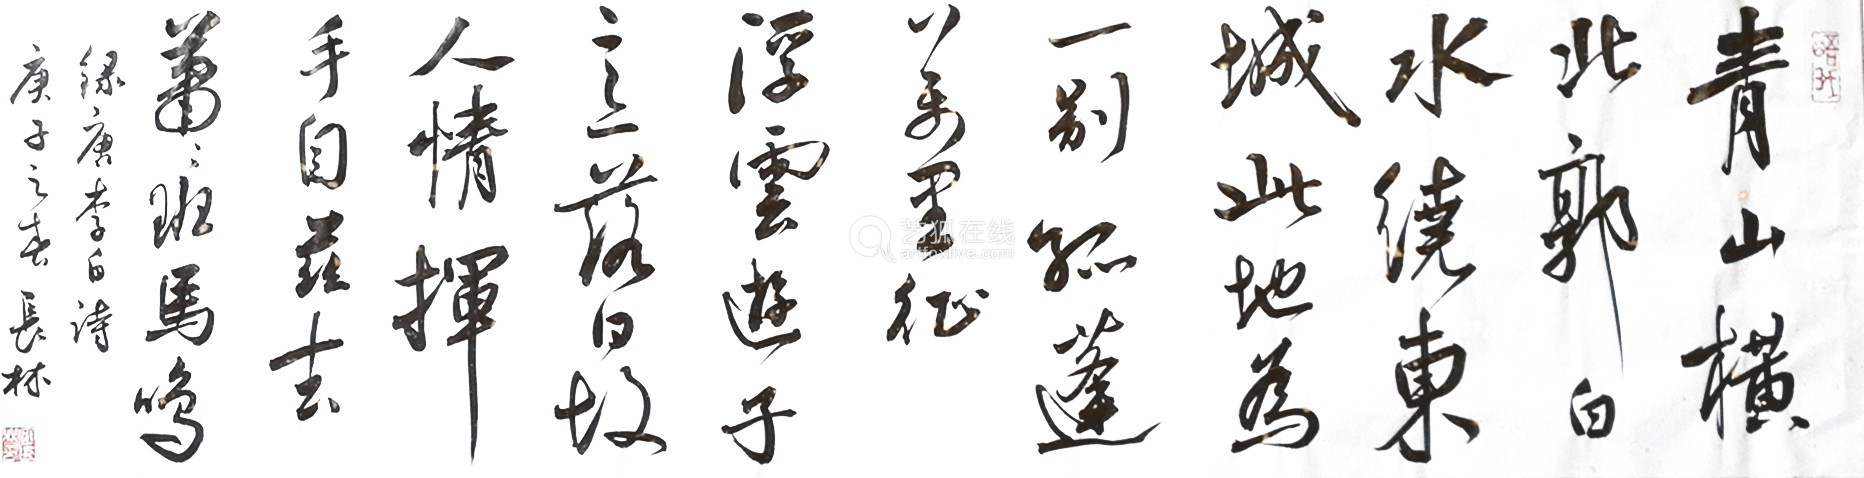 青山橫
北郭白
水繞東
城此地為
一別孤蓬
萬里征
浮雲遊子
意落日故
人情揮
手自茲去
蕭〻班馬鳴
錄唐李白詩
庚子之春 長林
艺狐在线
artfoxlive.com